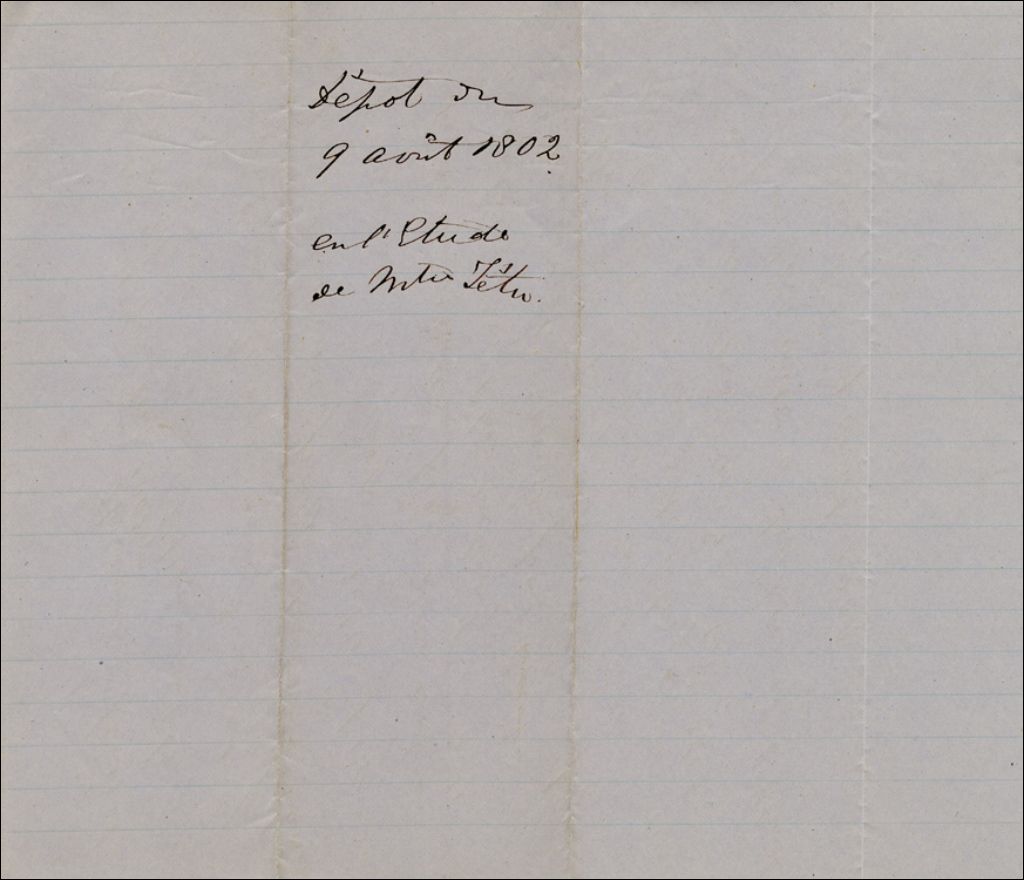 Dépot du
9 août 1802
en l'Etude
de Mtre Têtu.